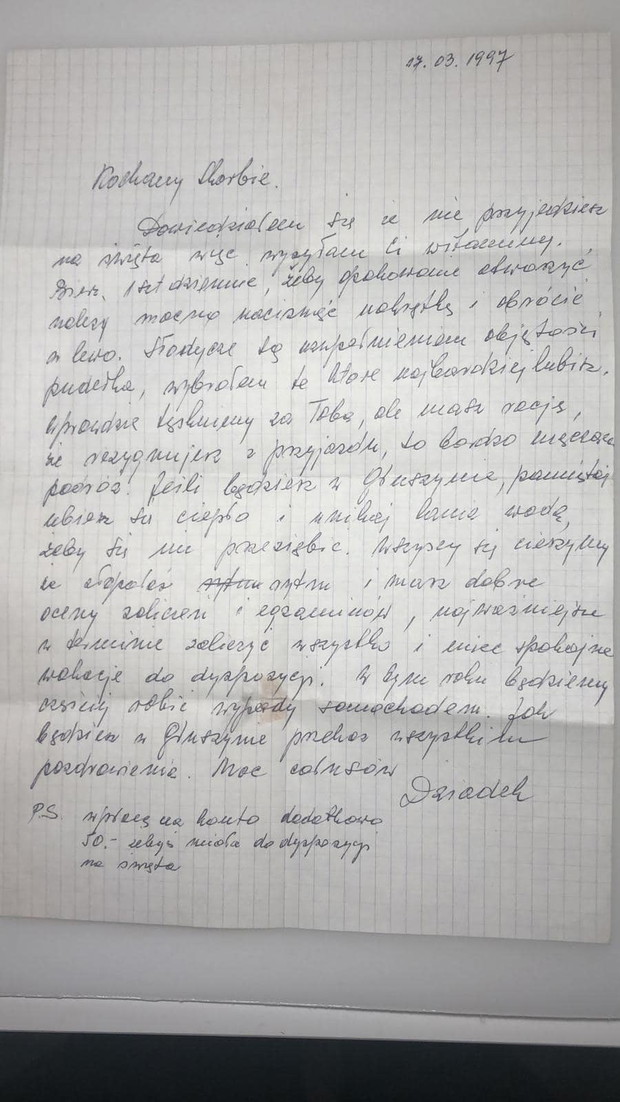 17.03.1997
Kochany Skarbie.
Dowiedziałem się że nie przyjedziesz
na święta więc wysyłam Ci witaminy.
Bierz 1 szt dziennie, żeby opakowanie otworzyć
należy mocno nacisnąć nakrętkę i obrócić
w lewo. Słodycze są uzupełnieniem objętości
pudełka, wybrałem te które najbardziej lubisz.
Wprawdzie tęsknimy za Tobą, ale masz rację,
że rezygnujesz z przyjazdu, to bardzo męcząca
podróż. Jeśli będziesz w Głuszynie, pamiętaj
ubierz się ciepło i unikaj lania wodą,
żeby się nie przeziębić. Wszyscy się cieszymy
że złapałaś rytm i masz dobre
oceny zaliczeń i egzaminów, najważniejsze
w terminie zaliczyć wszystko i mieć spokojne
wakacje do dyspozycji. W tym roku będziemy
częściej robić wypady samochodem. Jak
będziesz w Głuszynie przekaż wszystkim
pozdrowienia. Moc całusów
Dziadek
P.S. wpłacę na konto dodatkowo
50.- żebyś miała do dyspozycji
na święta